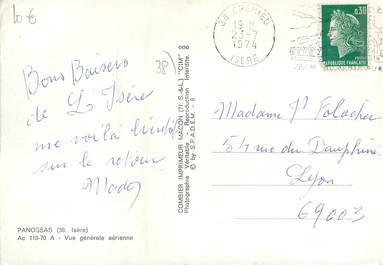 10 €
38)
Bons Baisers
de L'Isère
me voilà bientôt
sur le retour
Mado
PANOSSAS (38. Isère)
Ac 110-70 A - Vue générale aérienne
COMBIER IMPRIMEUR MACON (71. S.-&-L.) "CIM"
Photographie Véritable - Reproduction Interdite.
© by S.P.A.D.E.M. -
38
19 H
23-7
1974
ISERE
0,30
REPUBLIQUE FRANÇAISE
Madame
54 rue du Dauphiné
Lyon
69003